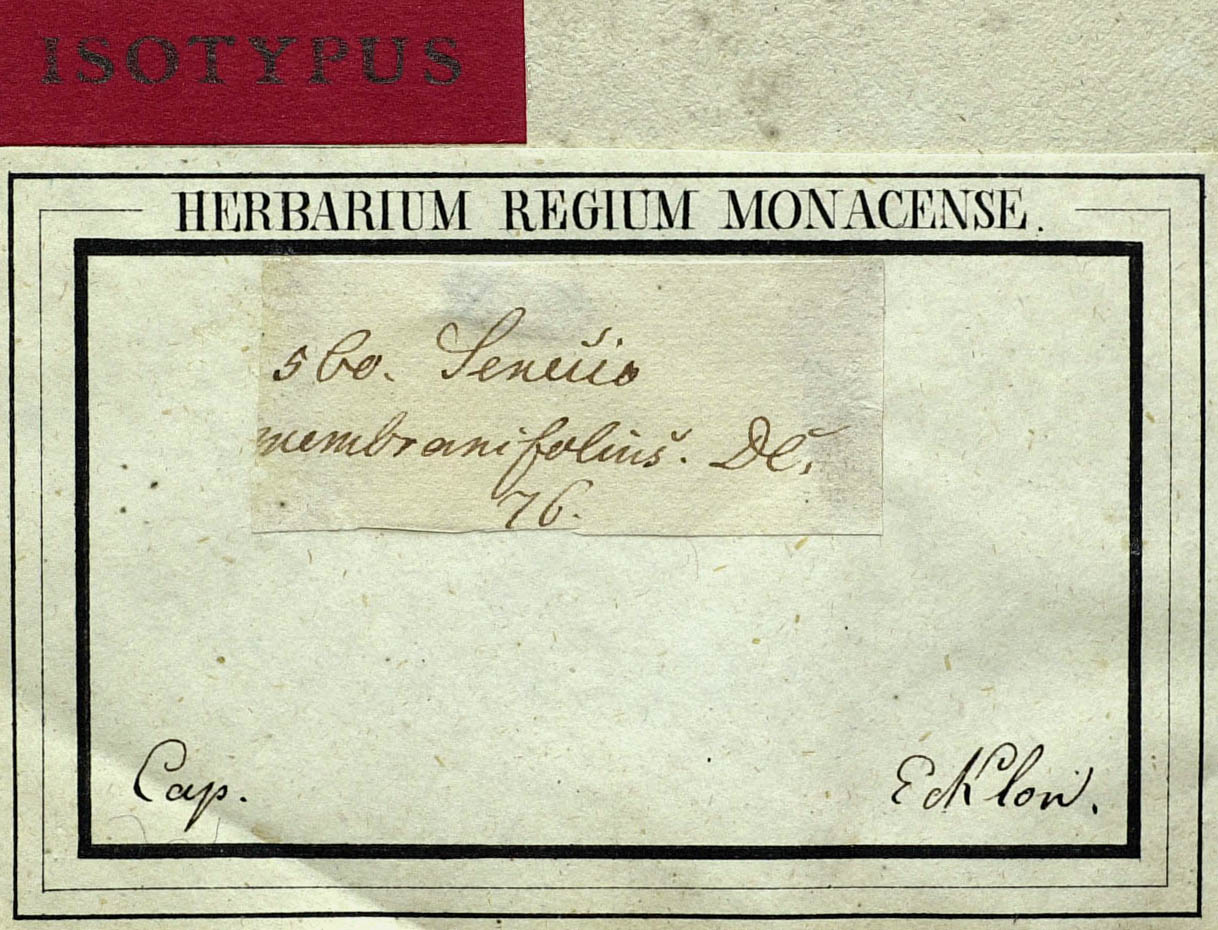 ISOTYPUS
HERBARIUM REGIUM MONACENSE.
560. Senecio
membranifolius. DC.
76.
Cap.
Ecklon.